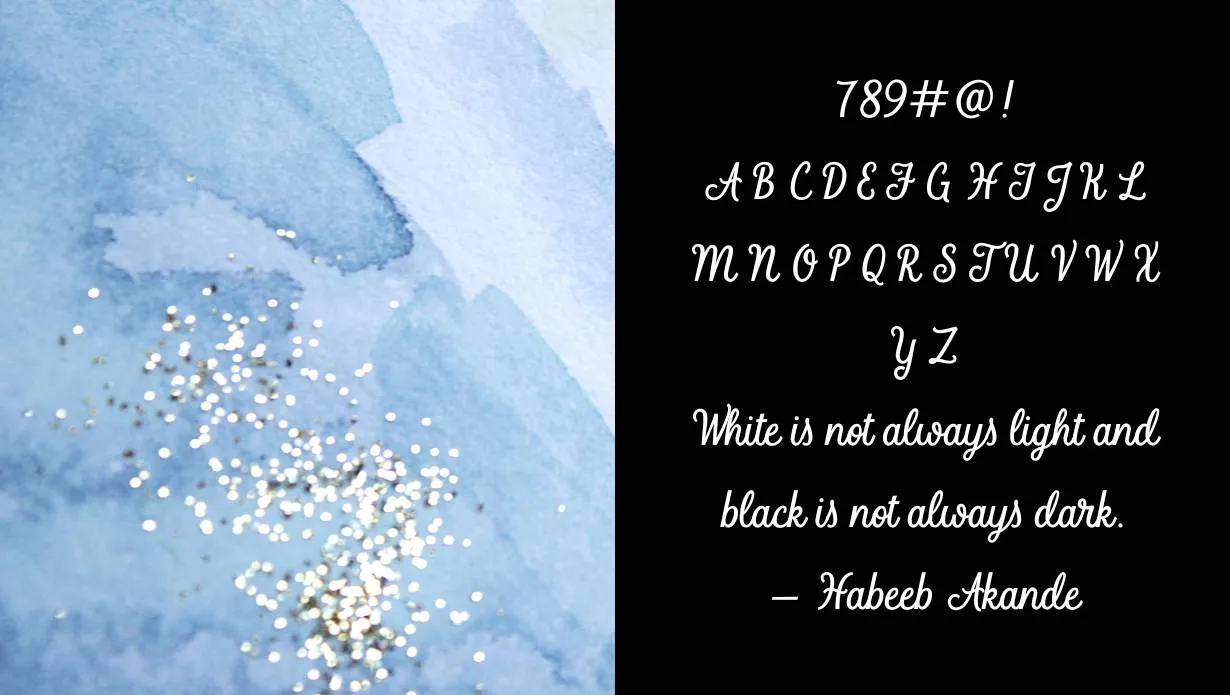 789#@!
A B C D E F G H I J K L
M N O P Q R S T U V W X
Y Z
White is not always light and
black is not always dark.
– Habeeb Akande